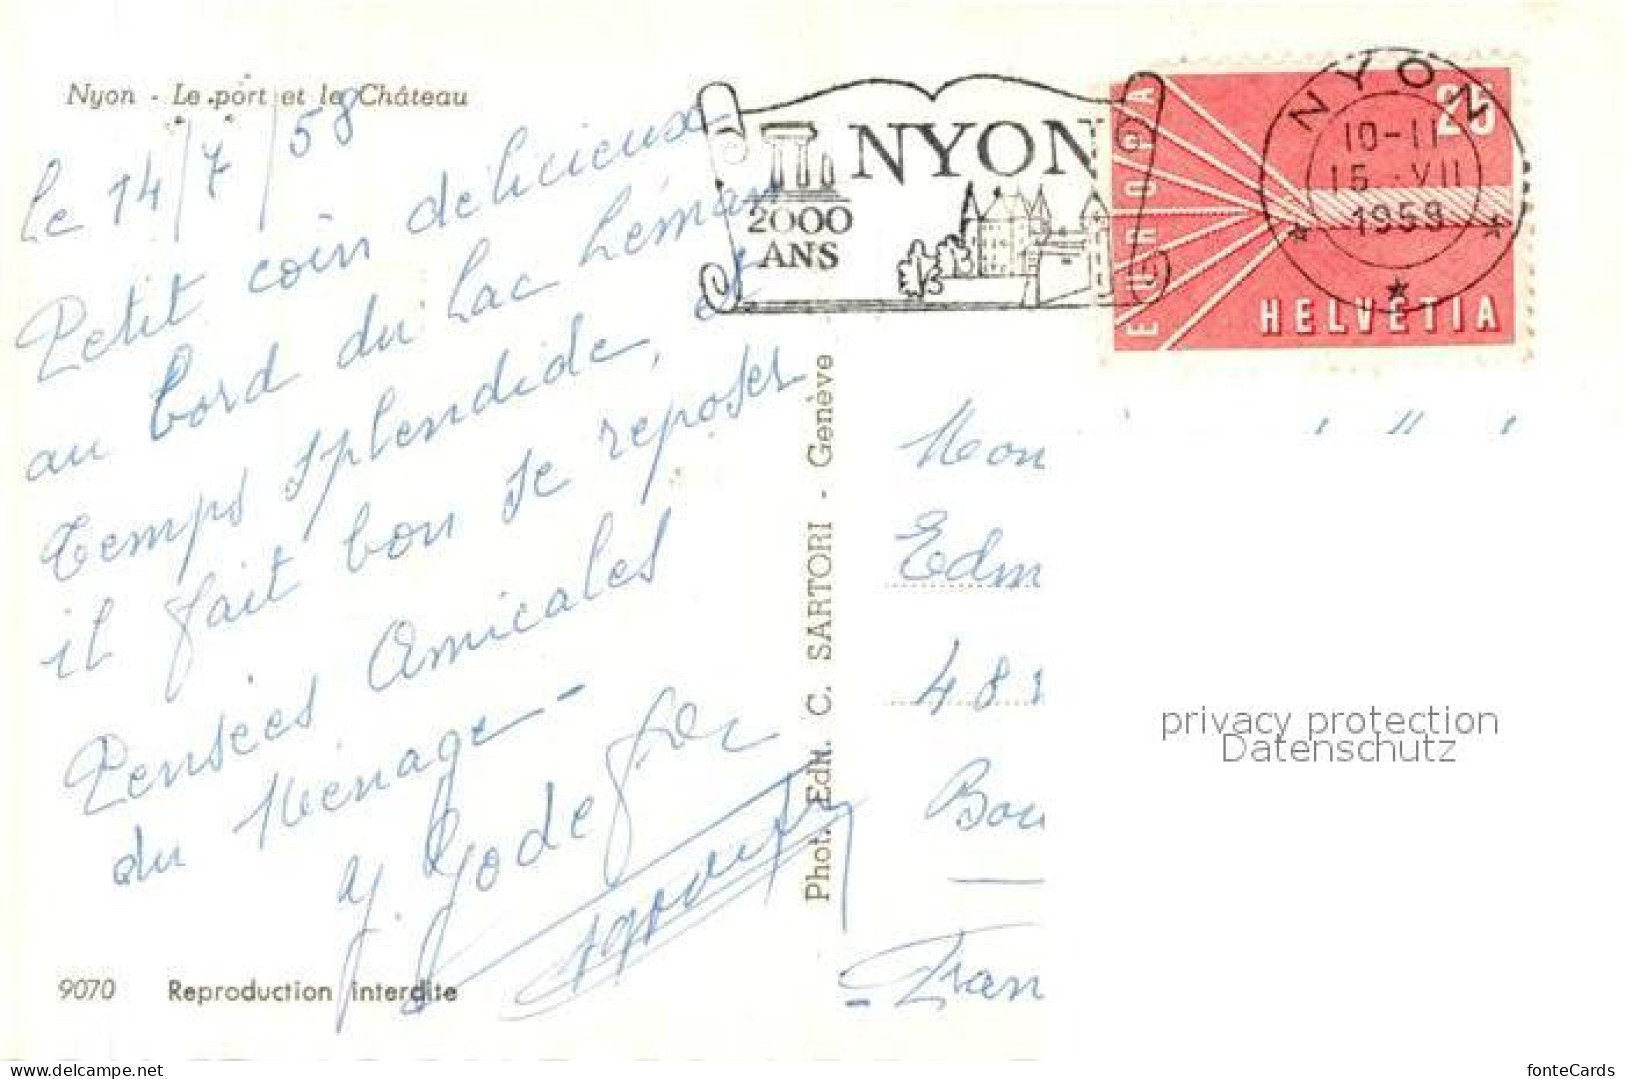 Nyon - Le port et le Château
Le 14/7/58
Petit coin délicieux
au bord du Lac Léman
Temps splendide, et
il fait bon se reposer
Pensées Amicales
du Ménage -
9070 Reproduction interdite
Phot. Edit. C. SARTORI - Genève
NYON
2000
ANS
EUROPA
25
HELVETIA
NYON
10-11
15. VII
1959
Mon
Edm
48
Bou
Fran
privacy protection
Datenschutz
www.delcampe.net
fonteCards